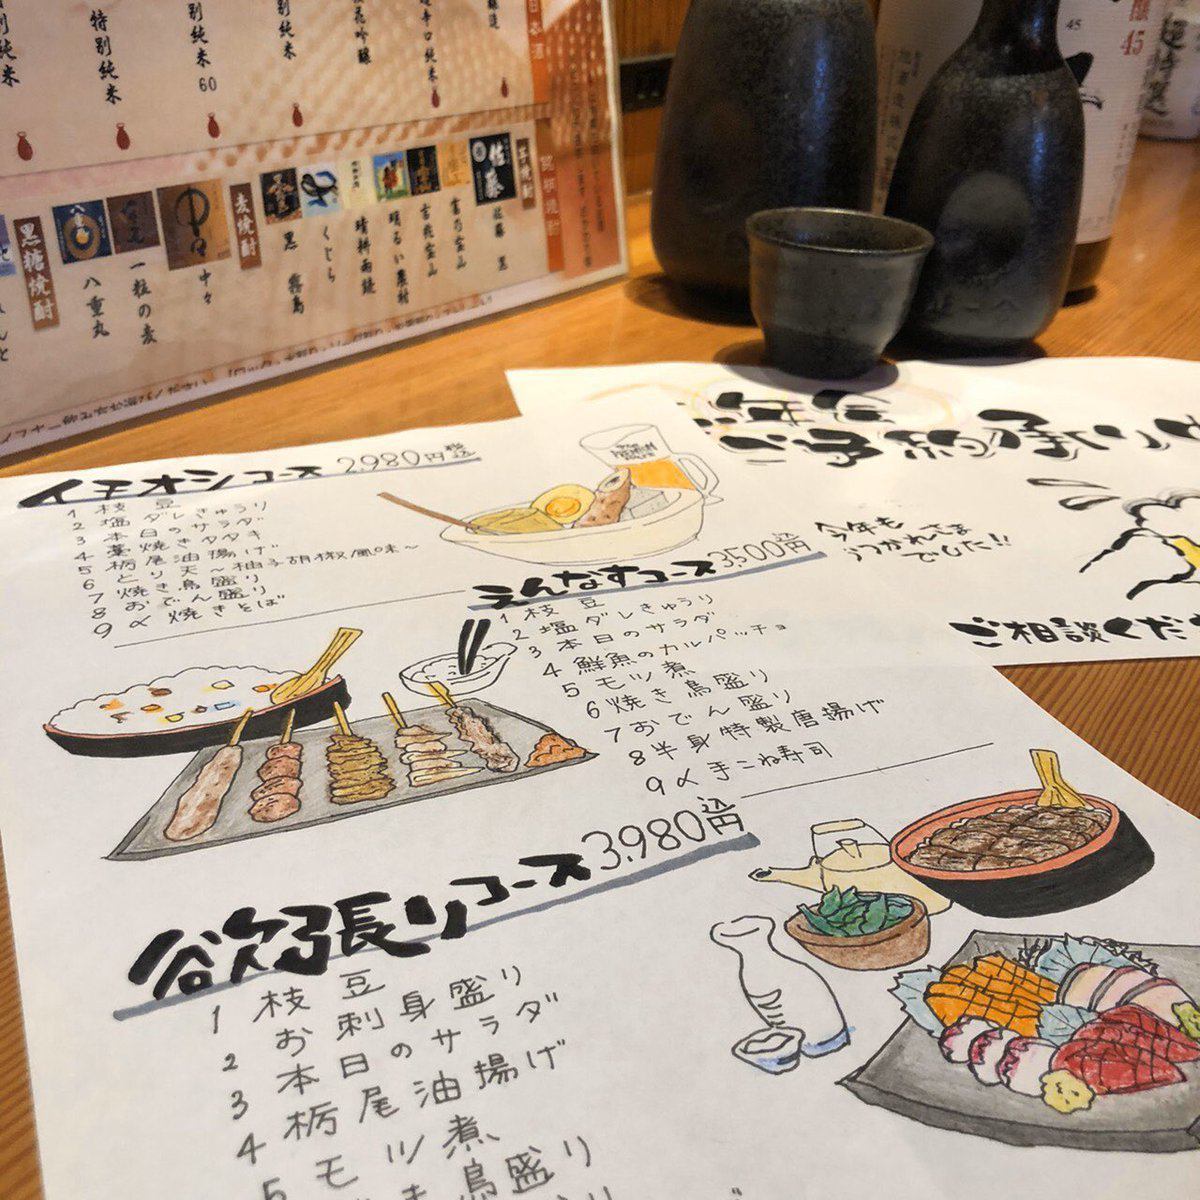 特別純米
特別純米
60
別純米
日本酒
芋焼酎
佐藤
佐藤 黒
富乃宝山
吉兆宝山
明るい農村
晴耕雨読
くじら
黒 霧島
麦焼酎
中々
一粒の麦
八重丸
黒糖焼酎
45
45
イチオシコース 2980円税込
1 枝豆
2 塩ダレきゅうり
3 本日のサラダ
4 藁焼きタタキ
5 栃尾油揚げ
6 とり天～柚子胡椒風味～
7 焼き鳥盛り
8 おでん盛り
9 〆焼きそば
えんなすコース 3,500税込円
1 枝豆
2 塩ダレきゅうり
3 本日のサラダ
4 鮮魚のカルパッチョ
5 モツ煮
6 焼き鳥盛り
7 おでん盛り
8 半身特製唐揚げ
9 〆手こね寿司
欲張りコース 3,980税込円
1 枝豆
2 お刺身盛り
3 本日のサラダ
4 栃尾油揚げ
5 モツ煮
鳥盛り
ご予約承り
今年も
おつかれさま
でした!!
ご相談くだ